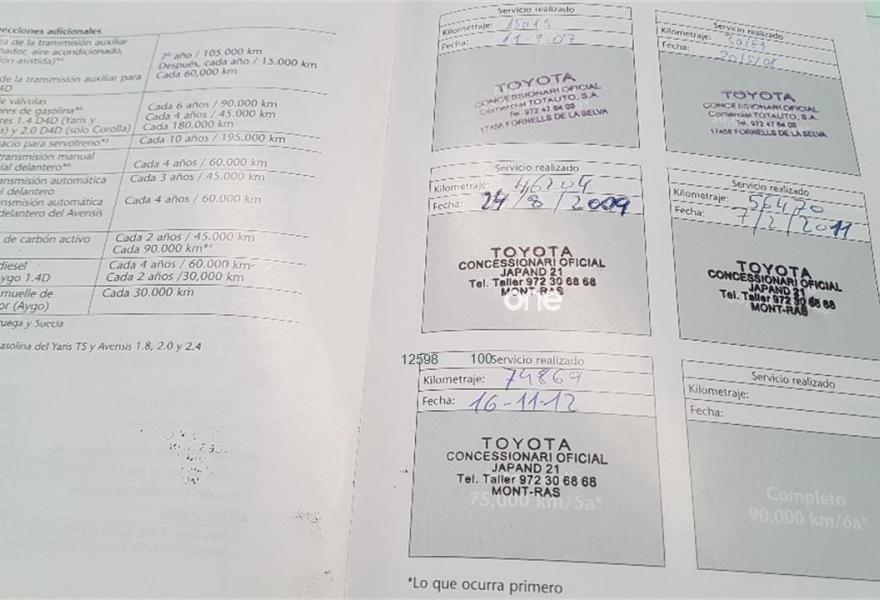 ecciones adicionales
a de la transmisión auxiliar
nador, aire acondicionado,
ión asistida)*²
7º año / 105.000 km
Después, cada año / 15.000 km
de la transmisión auxiliar para
4D
Cada 60,000 km
e válvulas
res de gasolina*³
Cada 6 años / 90.000 km
res 1.4 D4D (Yaris y
Cada 4 años / 45.000 km
a) y 2.0 D4D (sólo Corolla)
Cada 180.000 km
acío para servofreno*²
Cada 10 años / 195.000 km
transmisión manual
ial delantero*²
Cada 4 años / 60.000 km
ansmisión automática
l delantero
Cada 3 años / 45.000 km
nsmisión automática
delantero del Avensis
Cada 4 años / 60.000 km
de carbón activo
Cada 2 años / 45.000 km
Cada 90.000 km*⁴
diesel
Cada 4 años / 60.000 km
ygo 1.4D
Cada 2 años /30,000 km
muelle de
or (Aygo)
Cada 30.000 km
uega y Suecia
asolina del Yaris TS y Avensis 1.8, 2.0 y 2.4
Servicio realizado
Kilometraje: 15015
Fecha: 11-9-07
TOYOTA
CONCESSIONARI OFICIAL
Comercial TOTAUTO, S.A.
Tel. 972 47 64 03
17458 FORNELLS DE LA SELVA
Servicio realizado
Kilometraje:
Fecha:
TOYOTA
CONCESSIONARI OFICIAL
Comercial TOTAUTO, S.A.
Tel. 972 47 64 03
17458 FORNELLS DE LA SELVA
Servicio realizado
Kilometraje: 46204
Fecha: 24/8/2009
TOYOTA
CONCESSIONARI OFICIAL
JAPAND 21
Tel. Taller 972 30 68 68
MONT-RAS
one
Servicio realizado
Kilometraje: 56470
Fecha: 7/2/2011
TOYOTA
CONCESSIONARI OFICIAL
JAPAND 21
Tel. Taller 972 30 68 68
MONT-RAS
12598 100
Servicio realizado
Kilometraje: 74869
Fecha: 16-11-12
TOYOTA
CONCESSIONARI OFICIAL
JAPAND 21
Tel. Taller 972 30 68 68
MONT-RAS
75,000 km/5a*
Servicio realizado
Kilometraje:
Fecha:
Completo
90,000 km/6a*
*Lo que ocurra primero